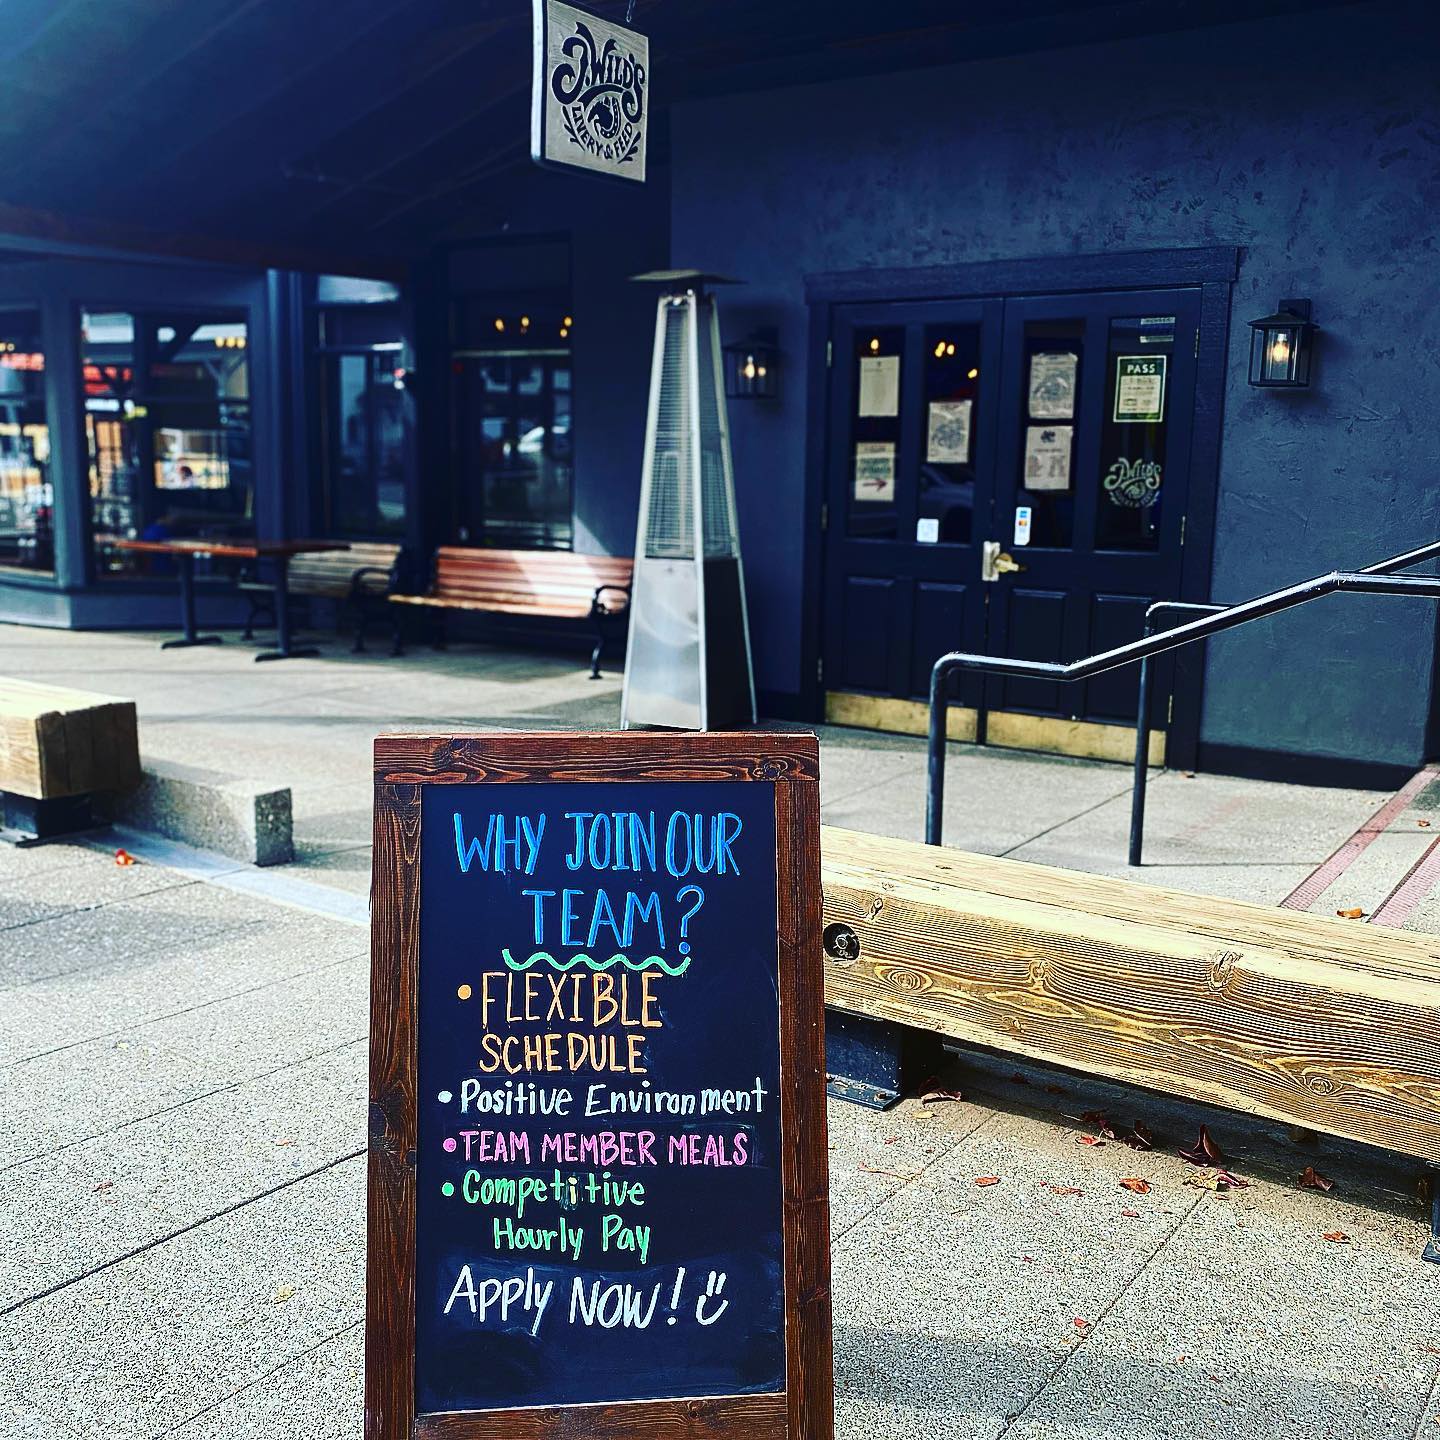 J.WILD'S
LIVERY & FEED
PASS
J.WILD'S
WHY JOIN OUR
TEAM?
• FLEXIBLE
SCHEDULE
• Positive Environment
• TEAM MEMBER MEALS
• Competitive
Hourly Pay
Apply NOW!